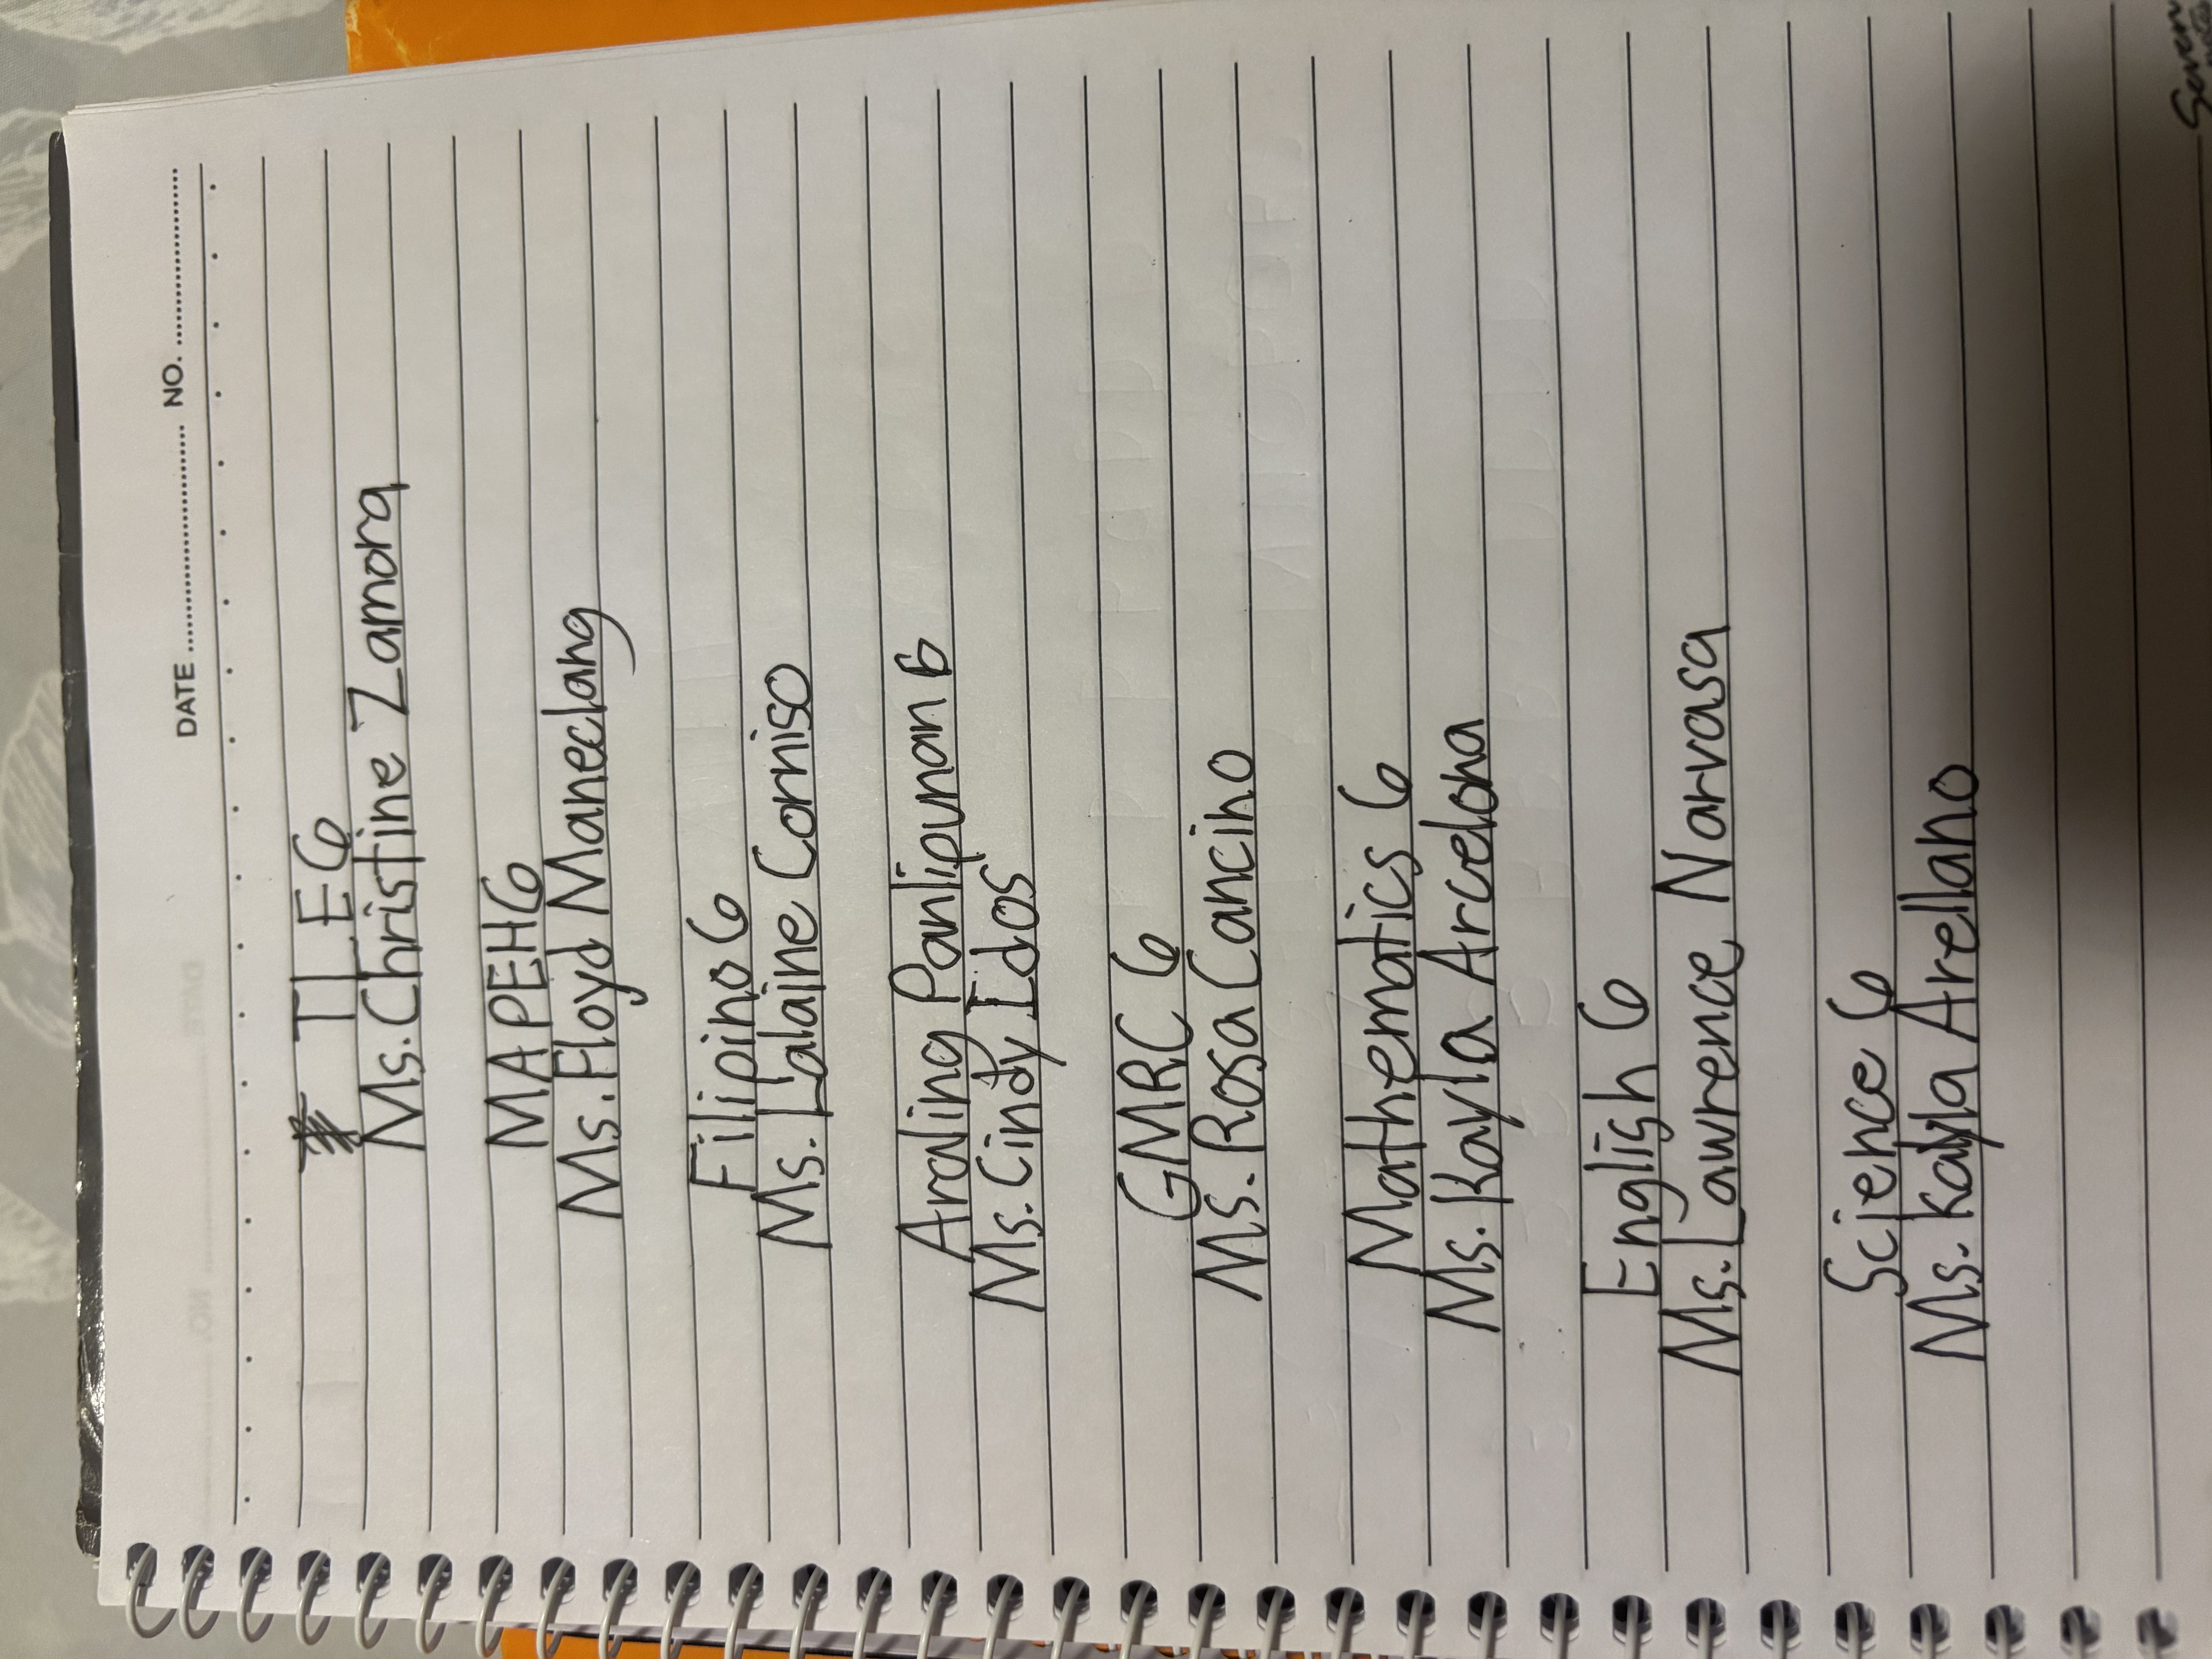 DATE NO.
TLE 6
Ms. Christine Zamora
MAPEH 6
Ms. Floyd Maneclang
Filipino 6
Ms. Lalaine Corniso
Araling Panlipunan 6
Ms. Cindy Edos
GMRC 6
Ms. Rosa Cancino
Mathematics 6
Ms. Kayla Arcelona
English 6
Ms. Lawrence Narvasa
Science 6
Ms. Kayla Arellano